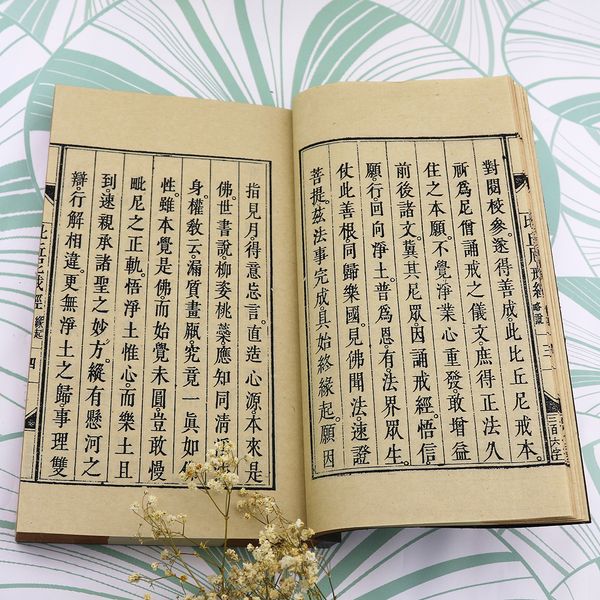 對閱校參。遂得善成。此比丘尼戒本。
祈爲尼僧誦戒之儀文。庶得正法久
住之本願。不覺淨業心重發。敢增益
前後諸文。冀其尼眾。因誦戒經。悟信
願行。回向淨土。普爲恩有。法界眾生。
仗此善根。同歸樂國。見佛聞法。速證
菩提。茲法事完成。具始終緣起。願因
指見月。得意忘言。直造心源。本來是
佛。世書說。柳姿桃蘂。應知同清
身。權敎云。漏質畫瓶。究竟一眞如
性。雖本覺是佛。而始覺未圓。豈敢慢
毗尼之正軌。悟淨土惟心。而樂土且
到。速親承諸聖之妙方。縱有懸河之
辯。行解相違。更無淨土之歸。事理雙
比丘尼戒經 四